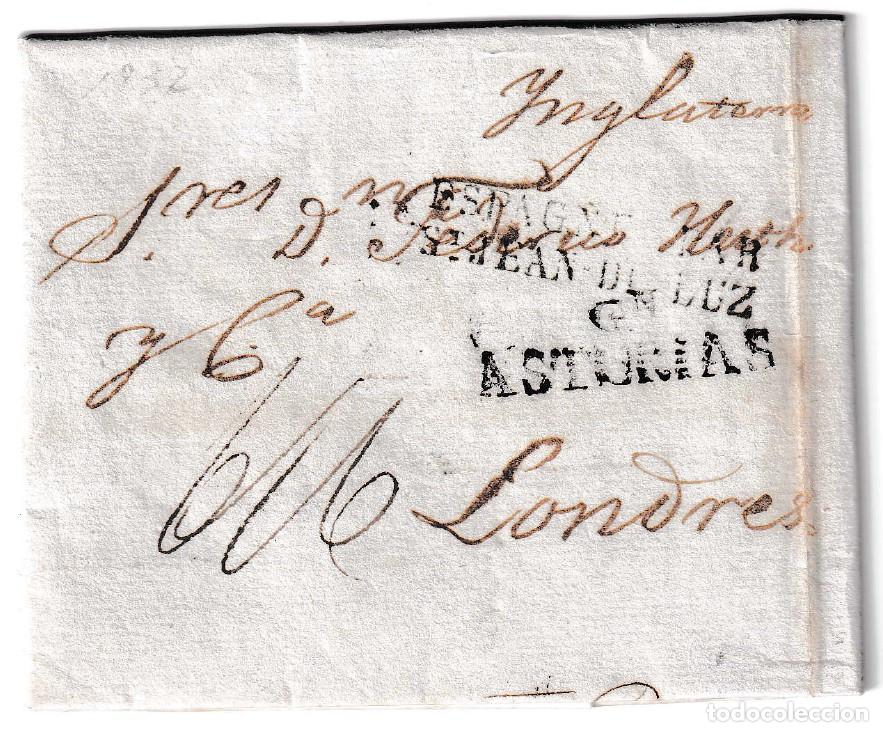 1832
Ynglaterra
S.res
D. Federico Huth
y C.a
ESPAGNE PAR
ST JEAN-DE-LUZ
ASTURIAS
Londres
todocoleccion